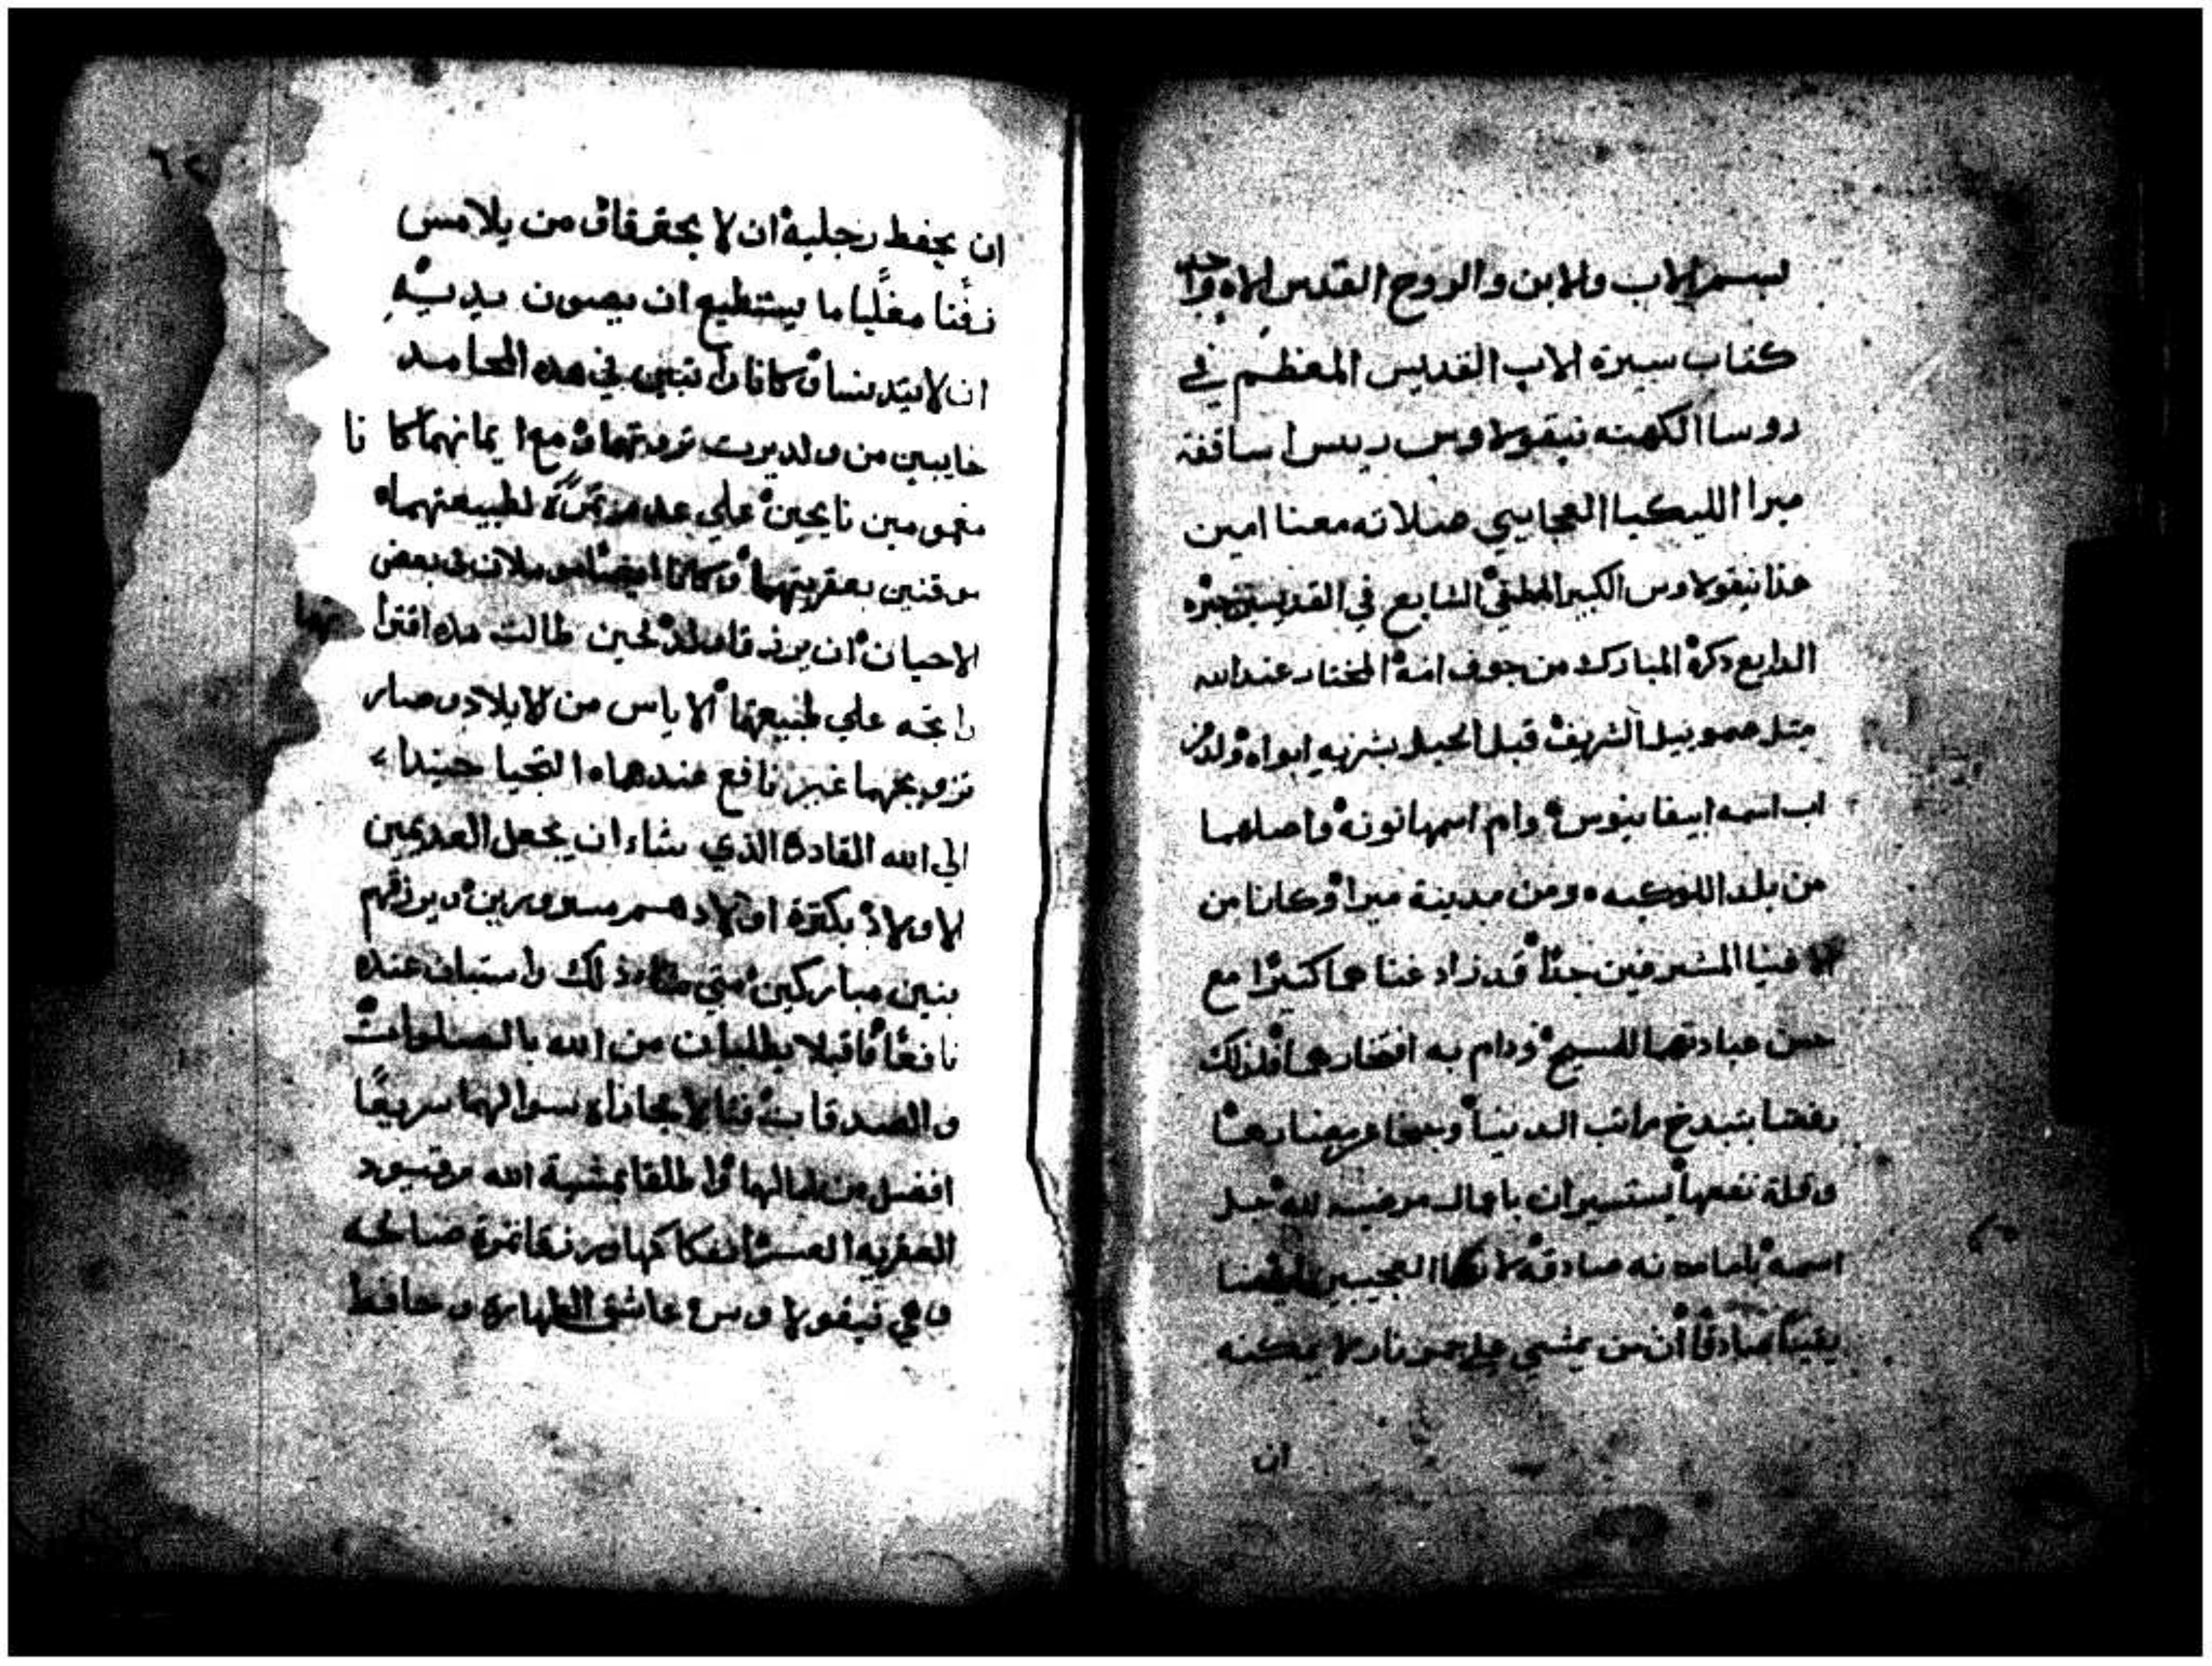 بسم الاب والابن والروح القدس الاه واحد
كتاب سيرة الاب القديس المعظم في
روسا الكهنه نيقولاوس رييس اساقفة
ميرا الليكيا العجايبي صلاته معنا امين
هذا نيقولاوس الكبير الشايع في القديسين خبره
الدايع دكره المبارك من جوف امه المختار عند الله
متل صموييل الشريف قبل الحبل بشر به ابواه ولد من
اب اسمه ابيفانيوس وام اسمها نونه واصلهما
من بلد اللوكيه ومن مدينة ميرا وكانا من
الاغنيا المشرفين جدًا قد زاد غناهما كتيرًا مع
حسن عبادتهما للمسيح ودام به افتخارهما فلذلك
رفضا بتبدخ مراتب الدنيا
وقلة نفعها يستسيران باعمال مرضيه لله جل
اسمه بامانه صادقه لانهما العجيبين ايقنا
يقينًا صادقًا أن من يمشي علي جمر نار لا يمكنه
ان
٦٢
ان يحفط رجليه ان لا يحترقا ومن يلامس
زفتا مغليا ما يستطيع ان يصون يديه
ان لا يتدنسا وكانا رابتين في هده المحامد
خايبين من ولد يرت تروتهما ومع ايمانهما كا نا
مغمومين نايحين علي عدم تمرة لطبيعتهما
موقنين بعقريتهما وكانا ايضا يوملان في بعض
الاحيان ان يرزقا ولد لحين طالت هده اقترا
رايحه علي طبيعتهما الاياس من الايلاد وصار
تزويجهما غير نافع عندهما التجيا حيندا
الي الله القادر الذي شاء ان يجعل العديمين
الاولاد بكترة اولادهم مسرورين ويرزقهم
بنين مباركين متي شا ذلك واستبان عنده
نافعًا فاقبلا يطلبان من الله بالصلوات
والصدقات فنالا مجازاه سوالهما سريعًا
افضل من امالهما واطلقا بمشية الله من قيود
العقريه العسر انفكاكها ورزقا تمرة صالحه
وهي نيقولاوس عاشق الطهارة وحافط